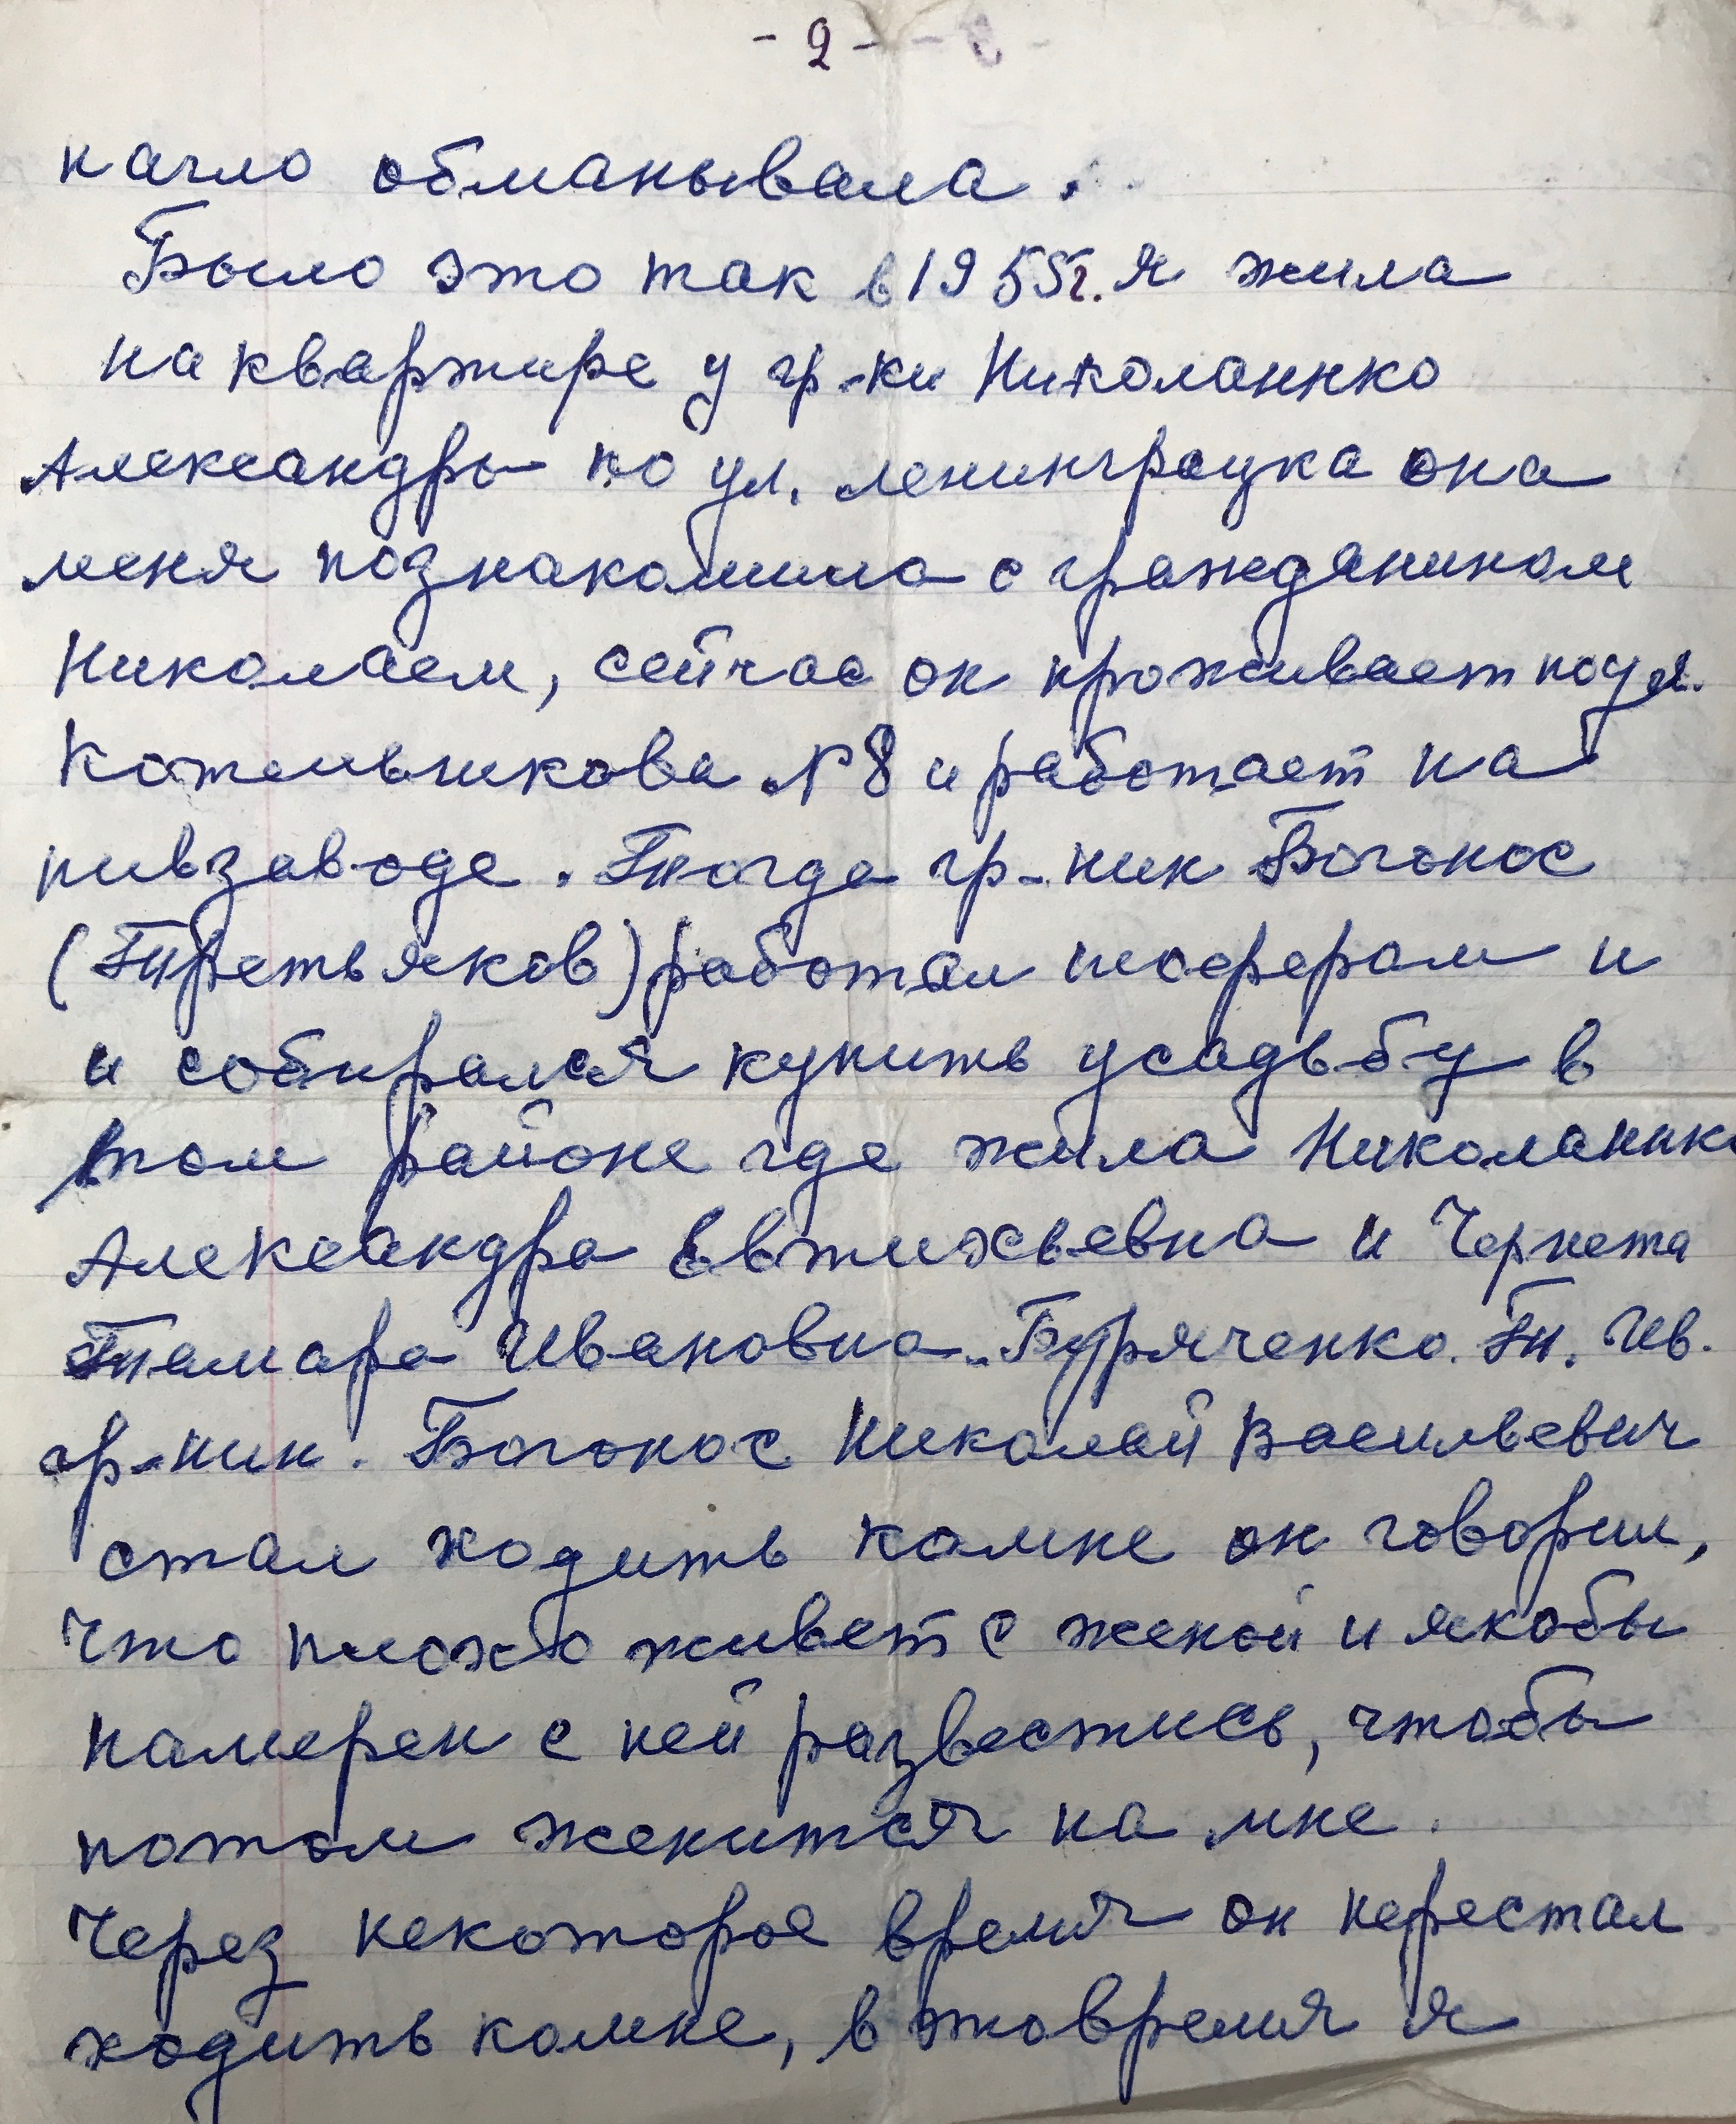 - 2 -
нагло обманывала.
Было это так в 1955г. я жила
на квартире у гр-ки Николаннко
Александры по ул. ленинграцка она
меня познакомила с гражданином
Николаем, сейчас он проживает по ул.
Котельникова № 8 и работает на
пивзаводе. Тогда гр-нин Богонос
(Третьяков) работал шофером и
и собирался купить усадьбу в
том районе где жила Николаннко
Александра Евтихьевна и Чернета
Тамара Ивановна - Буряченко. Т. Ив.
гр-нин. Богонос Николай Васильевич
стал ходить комне он говорил,
что плохо живет с женой и якобы
намерен с ней развестись, чтобы
потом женится на мне.
Через некоторое время он перестал
ходить комне, в товремия я